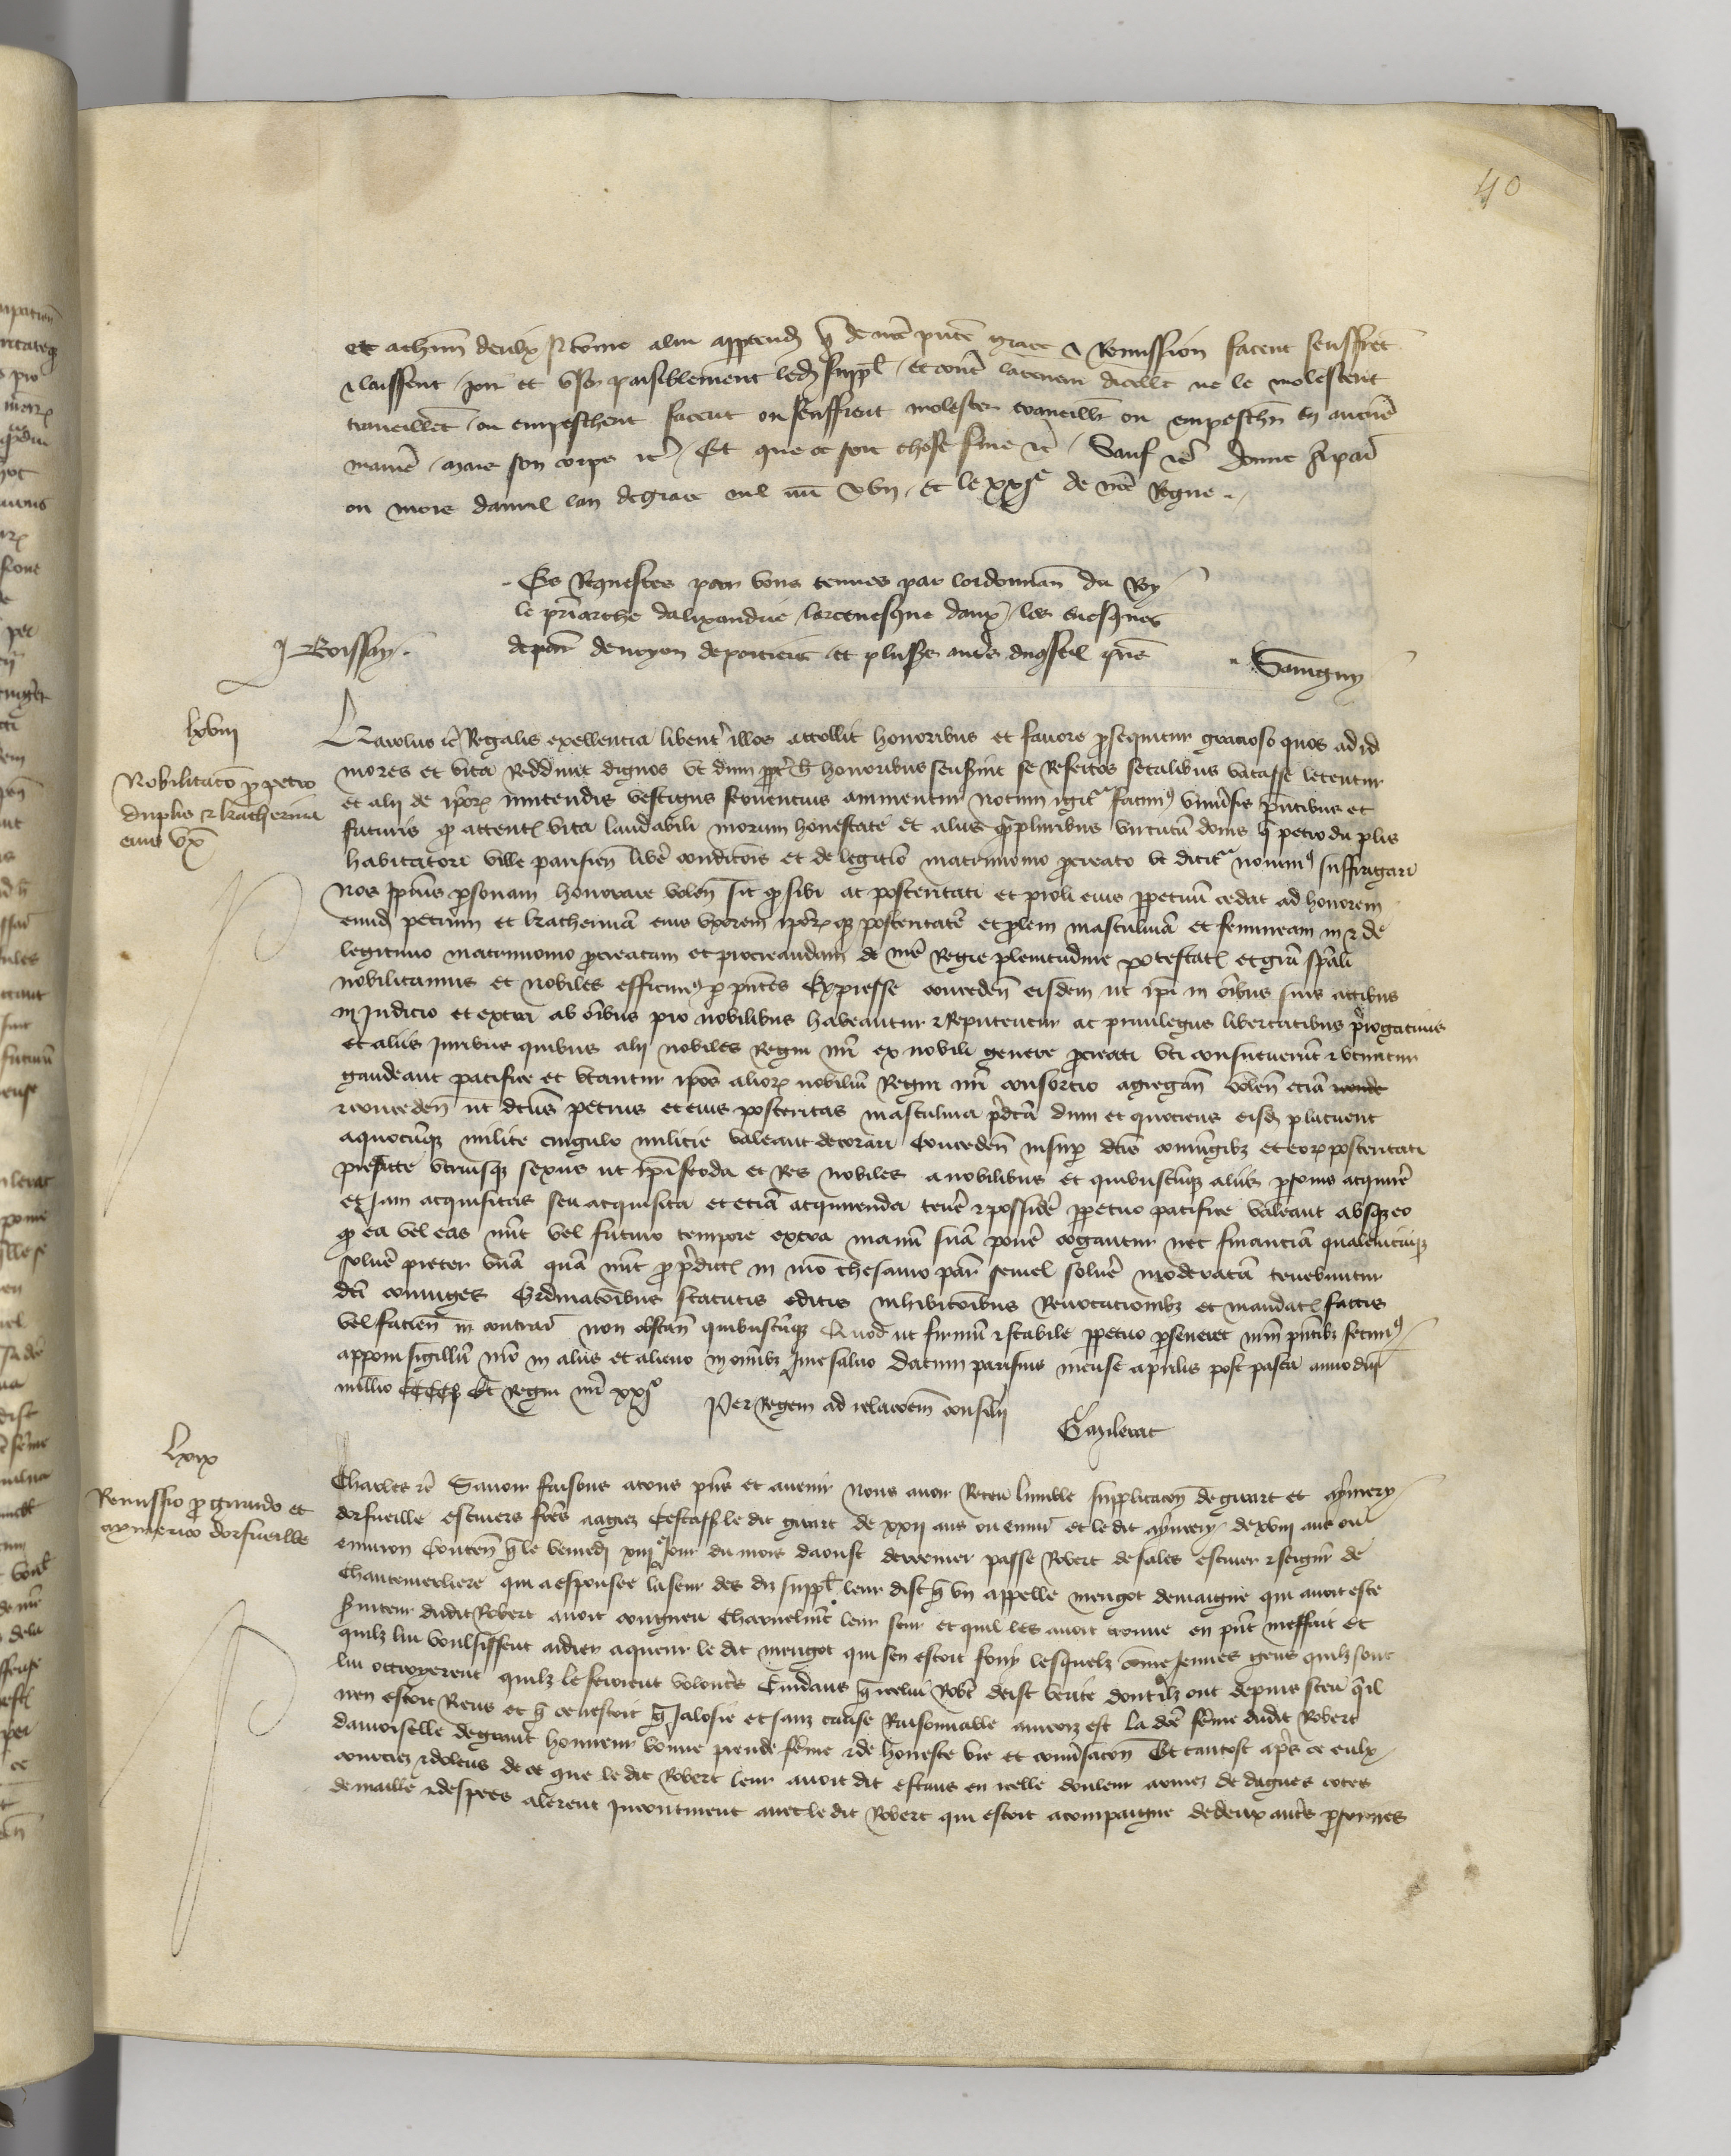 40
et achun deulx si come a lui appartendra que de notre pnte grace & Remission facent seuffrent
& laissent joir et user paisiblement ledit suppl et contre la teneur dicelle ne le molestent
traveillent ou empeschent facent ou seuffrent molester traveillier ou empeschier en aucune
maniere / mais son corps etc / Et que ce soit chose ferme etc / Sauf etc Donne a Paris
ou mois davril lan de grace mil CCCC & Un / Et le xxje de notre Regne
Es Requestes par vous tenues par lordonnan du Roy
le priarche dalixandrie larcevesque daux les evesques
de par de noyon de poitiers et plusrs autres du conseil presens
J Boissay
Savigny
lxviij
Nobilitaco pro petro
duplis & katherina
eius ux
Karolus etc Regalis excellencia libent illos attollit honoribus et favore prosequitur gracioso quos ad id
mores et vita reddunt dignos ut dum ppt h honoribus senserint se refectos se talibus vacasse letentur
et alii de ipor imitendis vestigiis ferventius animentur Notum igit facim universis pntibus et
futuris q attent vita laudabili morum honestate et aliis qpluribus virtutum donis q petro du plis
habitatori ville parisien libe conditois et de legitio matrimonio procreato ut dicit novim suffragari
Nos ipius psonam honorare volen sic q sibi ac posteritati et proli eius ppetuu cedat ad honorem
eund petrum et katherina eius uxorem ipor q posteritate et prolem masculina et femineam in & de
legitimo matrimonio procreatam et procreandam de nre Regie plenitudine potestat et gra spali
nobilitamus et nobiles efficim p pntes Expresse conceden eisdem ut ipi in oibus suis actibus
in judicio et extra ab oibus pro nobilibus habeantur & reputentur ac privilegiis libertatibus prerogativis
et aliis juribus quibus alii nobiles Regni nri ex nobili genere procreati uti consueverut & utuntur
gaudeant pacifice et utantur ipos alior nobiliu Regni nri consortio agregan volen etia
& conceden ut dtus petrus et eius posteritas masculina pdta dum et quociens eisd placuerit
a quocuq milite cingulo milicie valeant decorari Conceden insup dtis coniugibz et eor posteritati
prefate utriusq sexus ut ipi feoda et res nobiles a nobilibus et quibuscuq aliis psonis acquire
et jam acquisitas seu acquisita et etia acquirenda tene & posside ppetuo pacifice valeant absq eo
q ea vel eas nuc vel futuro tempore extra manu sua pone cogantur nec financia qualemcuq
solve preter una qua nuc p pdict in nro thesauro par semel solve moderata tenebuntur
dti coniuges Ordinacoibus statutis editis inhibicoibus Revocacionibz et mandat factis
vel facien in contrar non obstan quibuscuq Quod ut firmu & stabile ppetuo perseveret nrm pntibz fecim
apponi sigillu nro in aliis et alieno in omibz jure salvo Datum parisius mense aprilis post pasca anno dni
millio CCCC Et Regni nri xxjo
Per Regem ad relacoem consilii
Lxix
Remissio p girardo et
aymerico dorfueille
Charles etc Savoir faisons a tous pns et avenir nous avoir Receu lumble supplicacon de girart et aymery
dorfueille escuiers freres aagiez cestass le dit girart de xxii ans ou envir et le dit aymery de xviij ans ou
environ Conten q le venredi xiije jour du mois daoust derrenier passe Robert de sales escuier & seigneur de
Chantemerliere qui a espousee la seur des diz suppl leur dist q un appelle merigot demaigne qui avoit este
serviteur dudit Robert avoit congneu charnelmet leur seur et quil les avoit trouve en pnt meffait et
quilz lui voulsissent aidier a querir le dit merigot qui sen estoit fouy lesquelz come jeunes gens quilz sont
lui octroyerent quilz le feroient volontrs Cuidans q icelui Robt deist verite dont ilz ont depuis sceu quil
nen estoit riens et q ce nestoit q jalosie et sanz cause Raisonnable aincoiz est la dce feme dudit Robert
damoiselle de grant honneur bonne preude feme & de honeste vie et conversacon Et tantost apres ce eulx
couciez & doleus de ce que le dit Robert leur avoit dit estans en icelle douleur armez de dagues cotes
de maille & despees alerent Incontinent avec le dit Robert qui estoit acompaigne de deux autres psonnes